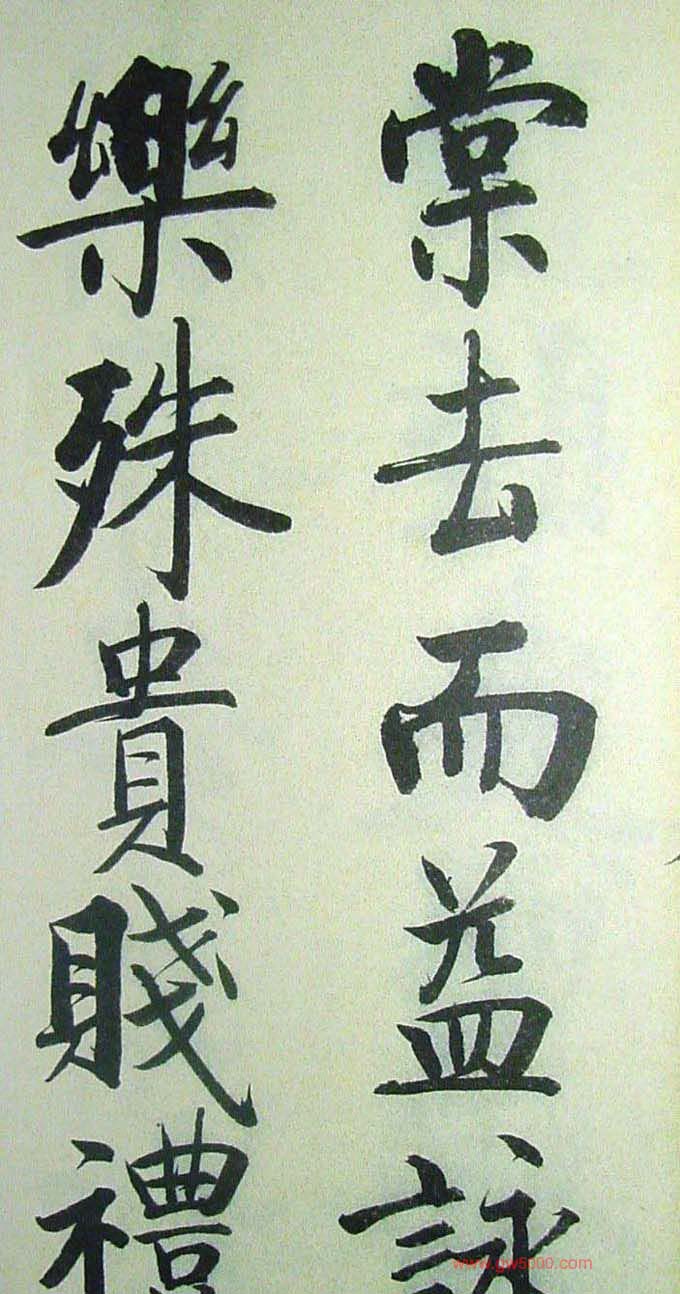 棠去而益詠
樂殊貴賤禮
www.gw5000.com